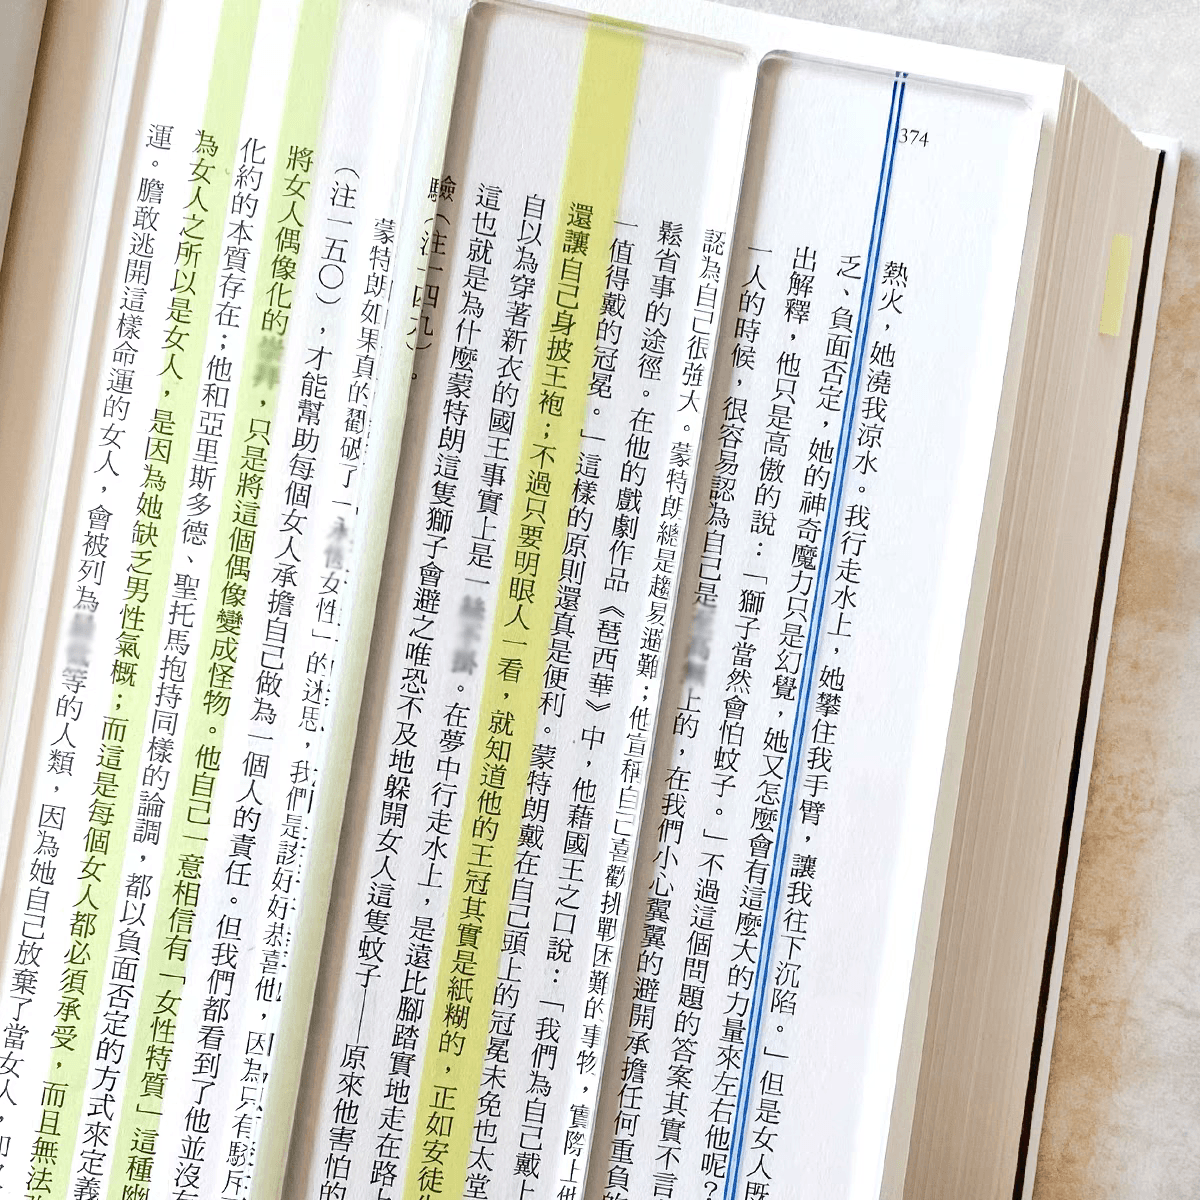 374
熱火，她澆我涼水。我行走水上，她攀住我手臂，讓我往下沉陷。」但是女人既
乏、負面否定，她的神奇魔力只是幻覺，她又怎麼會有這麼大的力量來左右他呢？
出解釋，他只是高傲的說：「獅子當然會怕蚊子。」不過這個問題的答案其實不言
一人的時候，很容易認為自己是上的，在我們小心翼翼的避開承擔任何重負的
認為自己很強大。蒙特朗總是趨易避難；他宣稱自己喜歡挑戰困難的事物，實際上他
鬆省事的途徑。在他的戲劇作品《琶西華》中，他藉國王之口說：「我們為自己戴上
一值得戴的冠冕。」這樣的原則還真是便利。蒙特朗戴在自己頭上的冠冕未免也太堂
還讓自己身披王袍；不過只要明眼人一看，就知道他的王冠其實是紙糊的，正如安徒
自以為穿著新衣的國王事實上是一。在夢中行走水上，是遠比腳踏實地走在路上
這也就是為什麼蒙特朗這隻獅子會避之唯恐不及地躲開女人這隻蚊子——原來他害怕的
驗（注一四九）。
蒙特朗如果真的戳破了「女性」的迷思，我們是該好好恭喜他，因為只有
（注一五〇），才能幫助每個女人承擔自己做為一個人的責任。但我們都看到了他並沒有
將女人偶像化的，只是將這個偶像變成怪物。他自己一意相信有「女性特質」這種
化約的本質存在；他和亞里斯多德、聖托馬抱持同樣的論調，都以負面否定的方式來定義
為女人之所以是女人，是因為她缺乏男性氣概；而這是每個女人都必須承受，而且無法
運。膽敢逃開這樣命運的女人，會被列為等的人類，因為她自己放棄了當女人，